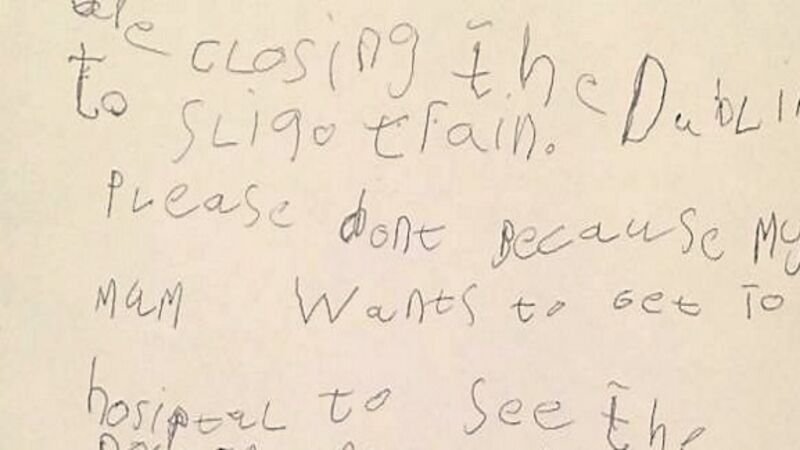 are cLosing the DubLin
to SLigo train.
PLease dont Because My
MaM Wants to Get To
hosiptaL to See the